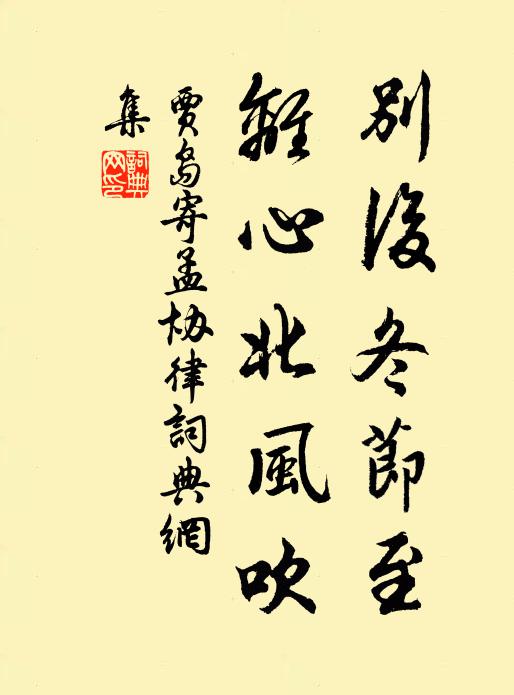 別後冬節至
離心北風吹
賈島寄孟协律詞典網
集
詞典网印